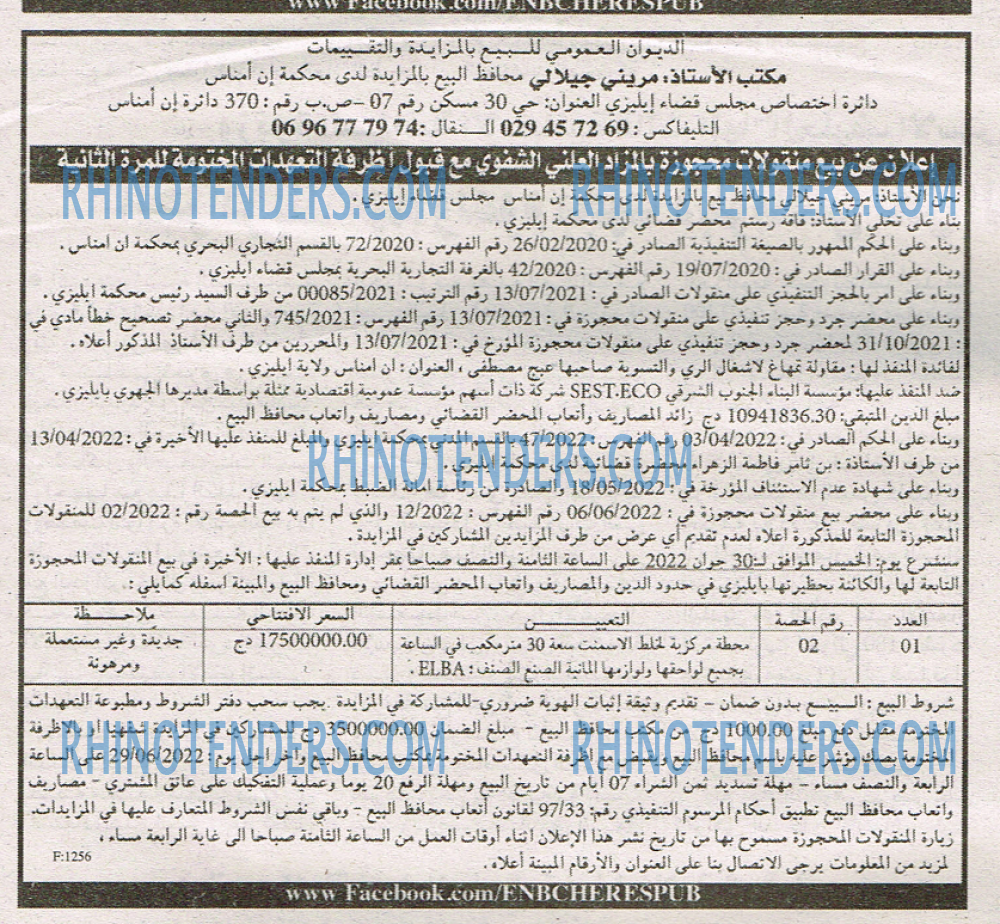 www Facebook.com/ENBCHERESPUB
الديوان العمومي للبيع بالمزايدة والتقييمات
مكتب الأستاذ: مريني جيلالي محافظ البيع بالمزايدة لدى محكمة إن أمناس
دائرة اختصاص مجلس قضاء إيليزي العنوان: حي 30 مسكن رقم 07 –ص.ب رقم: 370 دائرة إن أمناس
التليفاكس: 69 72 45 029 النقال :74 79 77 96 06
إعلان عن بيع منقولات محجوزة بالمزاد العلني الشفوي مع قبول أظرفة التعهدات المختومة للمرة الثانية
RHINOTENDERS.COM RHINOTENDERS.COM
نحن الأستاذ: مريني جيلالي محافظ بيع بالمزايدة لدى محكمة إن أمناس مجلس قضاء إيليزي .
بناء على تخلي الأستاذ: قاقة رستم محضر قضائي لدى محكمة إيليزي.
وبناء على الحكم الممهور بالصيغة التنفيذية الصادر في: 26/02/2020 رقم الفهرس: 72/2020 بالقسم التجاري البحري بمحكمة ان امناس .
وبناء على القرار الصادر في : 19/07/2020 رقم الفهرس: 42/2020 بالغرفة التجارية البحرية بمجلس قضاء ايليزي .
وبناء على امر بالحجز التنفيذي على منقولات الصادر في : 13/07/2021 رقم الترتيب : 00085/2021 من طرف السيد رئيس محكمة ايليزي .
وبناء على محضر جرد وحجز تنفيذي على منقولات محجوزة في : 13/07/2021 رقم الفهرس: 745/2021 والثاني محضر تصحيح خطأ مادي في
: 31/10/2021 لمحضر جرد وحجز تنفيذي على منقولات محجوزة المؤرخ في : 13/07/2021 والمحررين من طرف الأستاذ المذكور أعلاه .
لفائدة المنفذ لها : مقاولة تمهاغ لاشغال الري والتسوية صاحبها عبج مصطفى ، العنوان : ان امناس ولاية ايليزي .
ضد المنفذ عليها: مؤسسة البناء الجنوب الشرقي SEST.ECO شركة ذات أسهم مؤسسة عمومية اقتصادية ممثلة بواسطة مديرها الجهوي بايليزي .
مبلغ الدين المتبقي: 10941836.30 دج زائد المصاريف وأتعاب المحضر القضائي ومصاريف واتعاب محافظ البيع .
وبناء على الحكم الصادر في : 03/04/2022 رقم الفهرس : 47/2022 بالقسم المدني بمحكمة ايليزي والمبلغ للمنفذ عليها الأخيرة في : 13/04/2022
RHINOTENDERS.COM
من طرف الأستاذة : بن ثامر فاطمة الزهراء محضرة قضائية لدى محكمة ايليزي .
وبناء على شهادة عدم الاستئناف المؤرخة في : 18/05/2022 والصادرة من رئاسة امانة الضبط بمحكمة ايليزي .
وبناء على محضر بيع منقولات محجوزة في : 06/06/2022 رقم الفهرس : 12/2022 والذي لم يتم به بيع الحصة رقم : 02/2022 للمنقولات
المحجوزة التابعة للمذكورة اعلاه لعدم تقديم أي عرض من طرف المزايدين المشاركين في المزايدة .
سنشرع يوم: الخميس الموافق لـ:30 جوان 2022 على الساعة الثامنة والنصف صباحا بمقر إدارة المنفذ عليها : الأخيرة في بيع المنقولات المحجوزة
التابعة لها والكائنة بحظيرتها بايليزي في حدود الدين والمصاريف واتعاب المحضر القضائي ومحافظ البيع والمبينة اسفله كمايلي :
العدد رقم الحصة التعييـــن السعر الافتتاحي ملاحـــظة
01 02 محطة مركزية لخلط الاسمنت سعة 30 متر مكعب في الساعة 17500000.00 دج جديدة وغير مستعملة
بجميع لواحقها ولوازمها المانية الصنع الصنف : ELBA . ومرهونة
شروط البيع : البيع بدون ضمان – تقديم وثيقة إثبات الهوية ضروري-للمشاركة في المزايدة يجب سحب دفتر الشروط ومطبوعة التعهدات
المختومة مقابل دفع مبلغ 1000.00 دج من مكتب محافظ البيع – مبلغ الضمان 3500000.00 دج للمشاركين في المزايدة شفهيا او بالاظرفة
RHINOTENDERS.COM RHINOTENDERS.COM
المختومة بصك مؤشر عليه باسم محافظ البيع ويقبض مع اظرفة التعهدات المختومة بمكتب محافظ البيع واخر اجل يوم : 29/06/2022 على الساعة
الرابعة والنصف مساء – مهلة تسديد ثمن الشراء 07 أيام من تاريخ البيع ومهلة الرفع 20 يوما وعملية التفكيك على عاتق المشتري – مصاريف
واتعاب محافظ البيع تطبيق أحكام المرسوم التنفيذي رقم: 97/33 لقانون أتعاب محافظ البيع – وباقي نفس الشروط المتعارف عليها في المزايدات.
زيارة المنقولات المحجوزة مسموح بها من تاريخ نشر هذا الإعلان اثناء أوقات العمل من الساعة الثامنة صباحا الى غاية الرابعة مساء ،
لمزيد من المعلومات يرجى الاتصال بنا على العنوان والأرقام المبينة أعلاه .
F:1256
www Facebook.com/ENBCHERESPUB